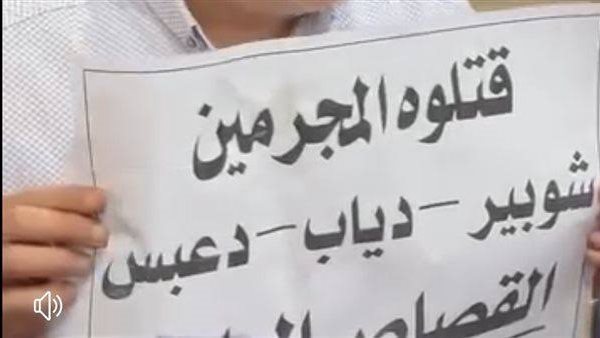 قتلوه المجرمين
شوبير - دياب - دعبس
القصاص